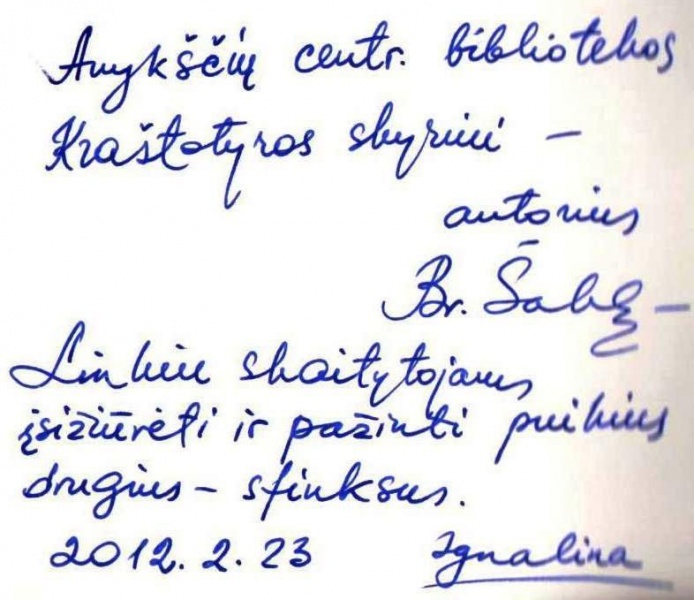 Anykščių centr. bibliotekos
Kraštotyros skyriui –
autorius
Br. Šablę –
Linkiu skaitytojams
įsižiūrėti ir pažinti puikius
drugius – sfinksus.
2012. 2. 23 Ignalina